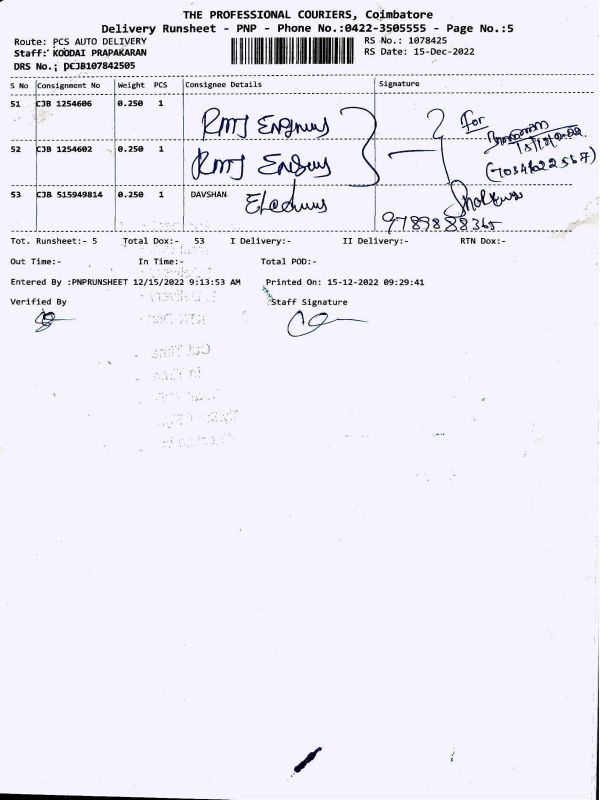 THE PROFESSIONAL COURIERS, Coimbatore
Delivery Runsheet - PNP - Phone No.:0422-3505555 - Page No.:5
Route: PCS AUTO DELIVERY
RS No.: 1078425
Staff: KOODAI PRAPAKARAN
RS Date: 15-Dec-2022
DRS No.: DCJB107842505
S No Consignment No Weight PCS Consignee Details Signature
51 CJB 1254606 0.250 1
RMJ
For
52 CJB 1254602 0.250 1
RMJ
53 CJB 515949814 0.250 1 DAVSHAN
9789888365
Tot. Runsheet:- 5 Total Dox:- 53 I Delivery:- II Delivery:- RTN Dox:-
Out Time:- In Time:- Total POD:-
Entered By :PNPRUNSHEET 12/15/2022 9:13:53 AM Printed On: 15-12-2022 09:29:41
Verified By Staff Signature